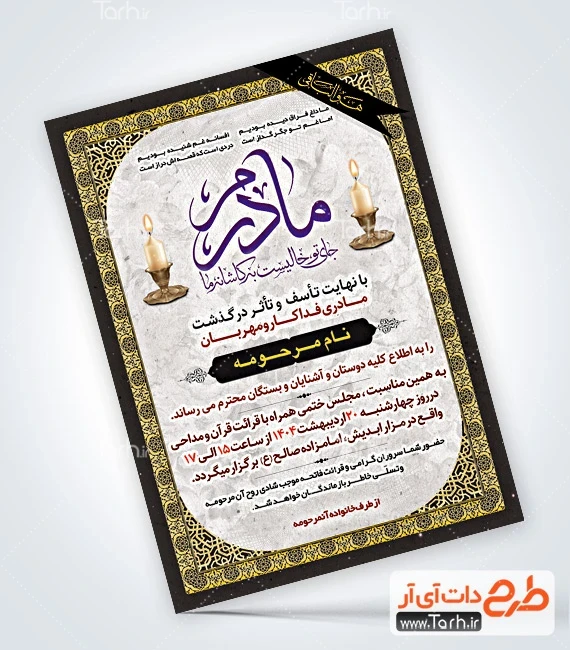 Tarh.ir
هوالباقی
ما داغ فراق دیده بودیم
افسانه غم شنیده بودیم
اما غم تو جگر گداز است
دردی است که قصه اش دراز است
مادرم
جای تو خالیست به کاشانه ما
با نهایت تأسف و تأثر درگذشت
مادری فداکار و مهربان
نام مرحومه
را به اطلاع کلیه دوستان و آشنایان و بستگان محترم می رساند.
به همین مناسبت، مجلس ختمی همراه با قرائت قرآن و مداحی
در روز چهارشنبه ۲۰ اردیبهشت ۱۴۰۴ از ساعت ۱۵ الی ۱۷
واقع در مزار ابدیش، امامزاده صالح (ع) برگزار میگردد.
حضور شما سروران گرامی و قرائت فاتحه موجب شادی روح آن مرحومه
و تسلی خاطر بازماندگان خواهد شد.
از طرف خانواده آنمرحومه
طرح دات آی آر
www.Tarh.ir